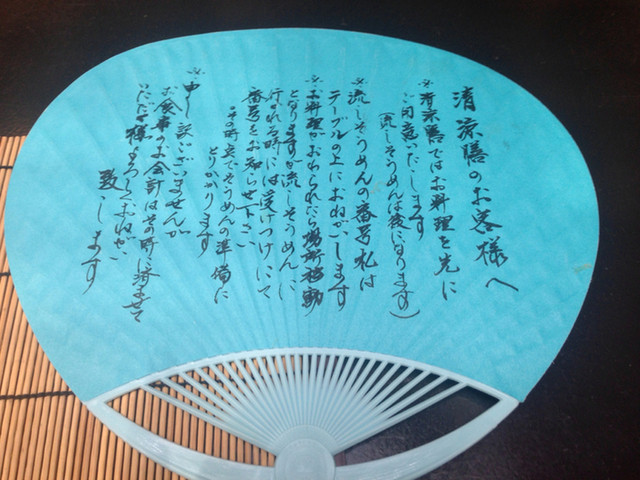 清涼膳のお客様へ
※清涼膳ではお料理を先に
ご用意いたします
(流しそうめんは後になります)
※流しそうめんの番号札は
テーブルの上におねがいします
※お料理がおわられたら場所移動
となりますが流しそうめんに
行かれる時には受けつけにて
番号をお知らせ下さい
その時点でそうめんの準備に
とりかかります
※申し訳ございませんが
お食事のお会計はその時に済ませて
いただき様よろしくおねがい
致します